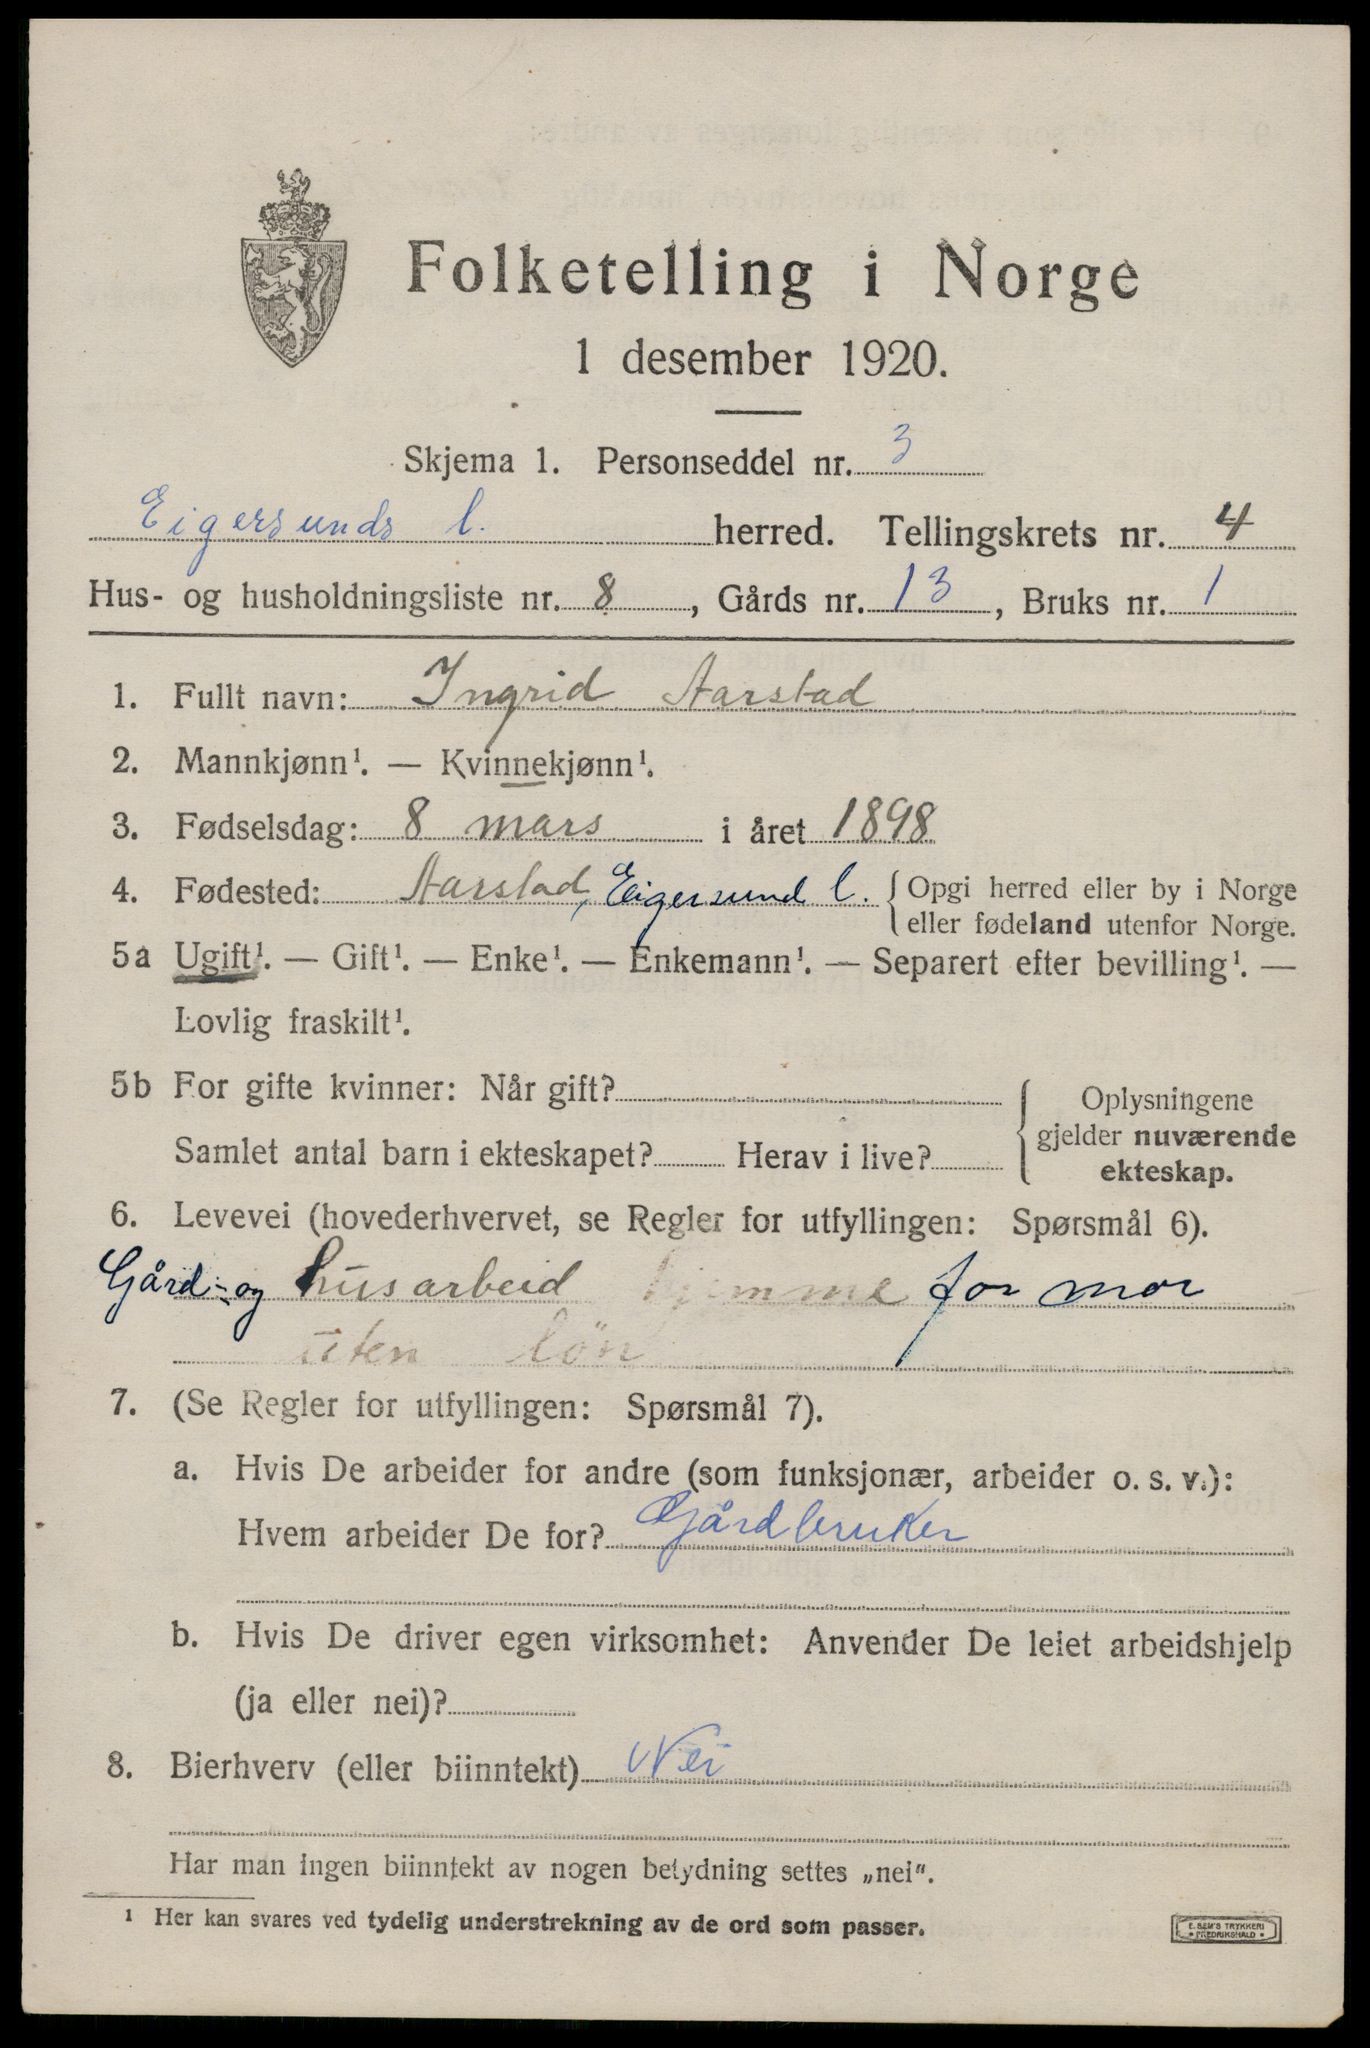 Folketelling i Norge
1 desember 1920.
Skjema 1. Personseddel nr. 3
Eigersunds l. herred. Tellingskrets nr. 4
Hus- og husholdningsliste nr. 8, Gårds nr. 13, Bruks nr. 1
1. Fullt navn: Ingrid Aarstad
2. Mannkjønn¹. — Kvinnekjønn¹.
3. Fødselsdag: 8 mars i året 1898
4. Fødested: Aarstad, Eigersund l. { Opgi herred eller by i Norge
eller fødeland utenfor Norge.
5a Ugift¹. — Gift¹. — Enke¹. — Enkemann¹. — Separert efter bevilling¹. —
Lovlig fraskilt¹.
5b For gifte kvinner: Når gift?
Samlet antal barn i ekteskapet? Herav i live?
{ Oplysningene
gjelder nuværende
ekteskap.
6. Levevei (hovederhvervet, se Regler for utfyllingen: Spørsmål 6).
Gård- og husarbeid hjemme for mor
uten løn
7. (Se Regler for utfyllingen: Spørsmål 7).
a. Hvis De arbeider for andre (som funksjonær, arbeider o. s. v.):
Hvem arbeider De for? Gårdbruker
b. Hvis De driver egen virksomhet: Anvender De leiet arbeidshjelp
(ja eller nei)?
8. Bierhverv (eller biinntekt) Nei
Har man ingen biinntekt av nogen betydning settes „nei“.
¹ Her kan svares ved tydelig understrekning av de ord som passer.
E. SEM'S TRYKKERI
• FREDRIKSHALD •